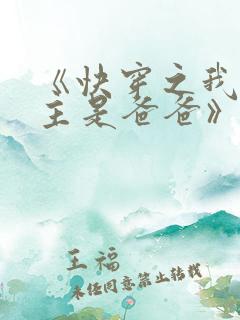 《快穿之我
主是爸爸》
王福
未经同意禁止转载